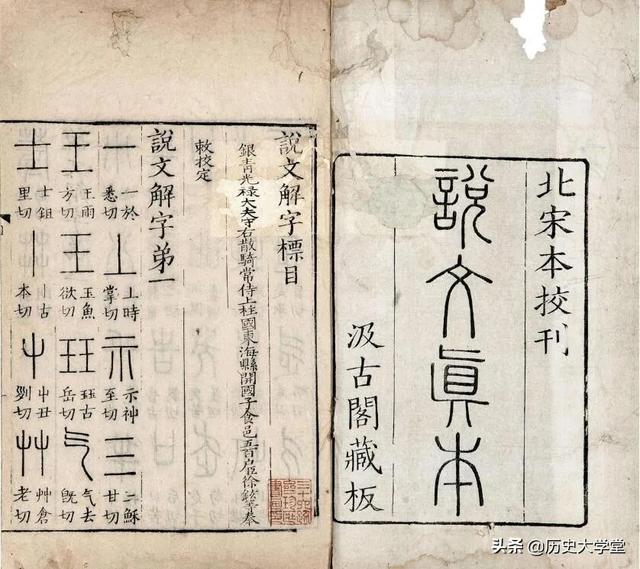 北宋本校刊
說文真本
汲古閣藏板
說文解字標目
銀青光祿大夫守右散騎常侍上柱國東海縣開國子食邑五百户臣徐鉉等奉
敕校定
說文解字弟一
一 一於悉切 丄 上時掌切 示 示神至切 三 三穌甘切
王 王雨方切 玉 玉魚欲切 玨 珏古岳切 气 气去旣切
士 士鉏里切 丨 丨古本切 屮 屮丑切 艸 艸倉老切
头条 @历史大学堂